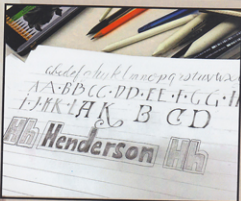 abcdefghijklmnopqrstuvwx
AA·BB·CC·DD·EE·F·GG·H
I·J·K·L AK B CD
Hh Henderson Hh